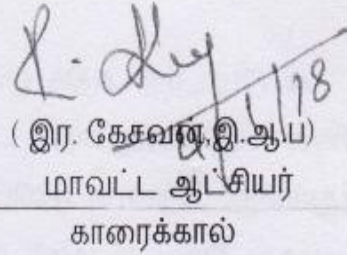 ( இர. கேசவன்,இ.ஆ.ப)
மாவட்ட ஆட்சியர்
காரைக்கால்